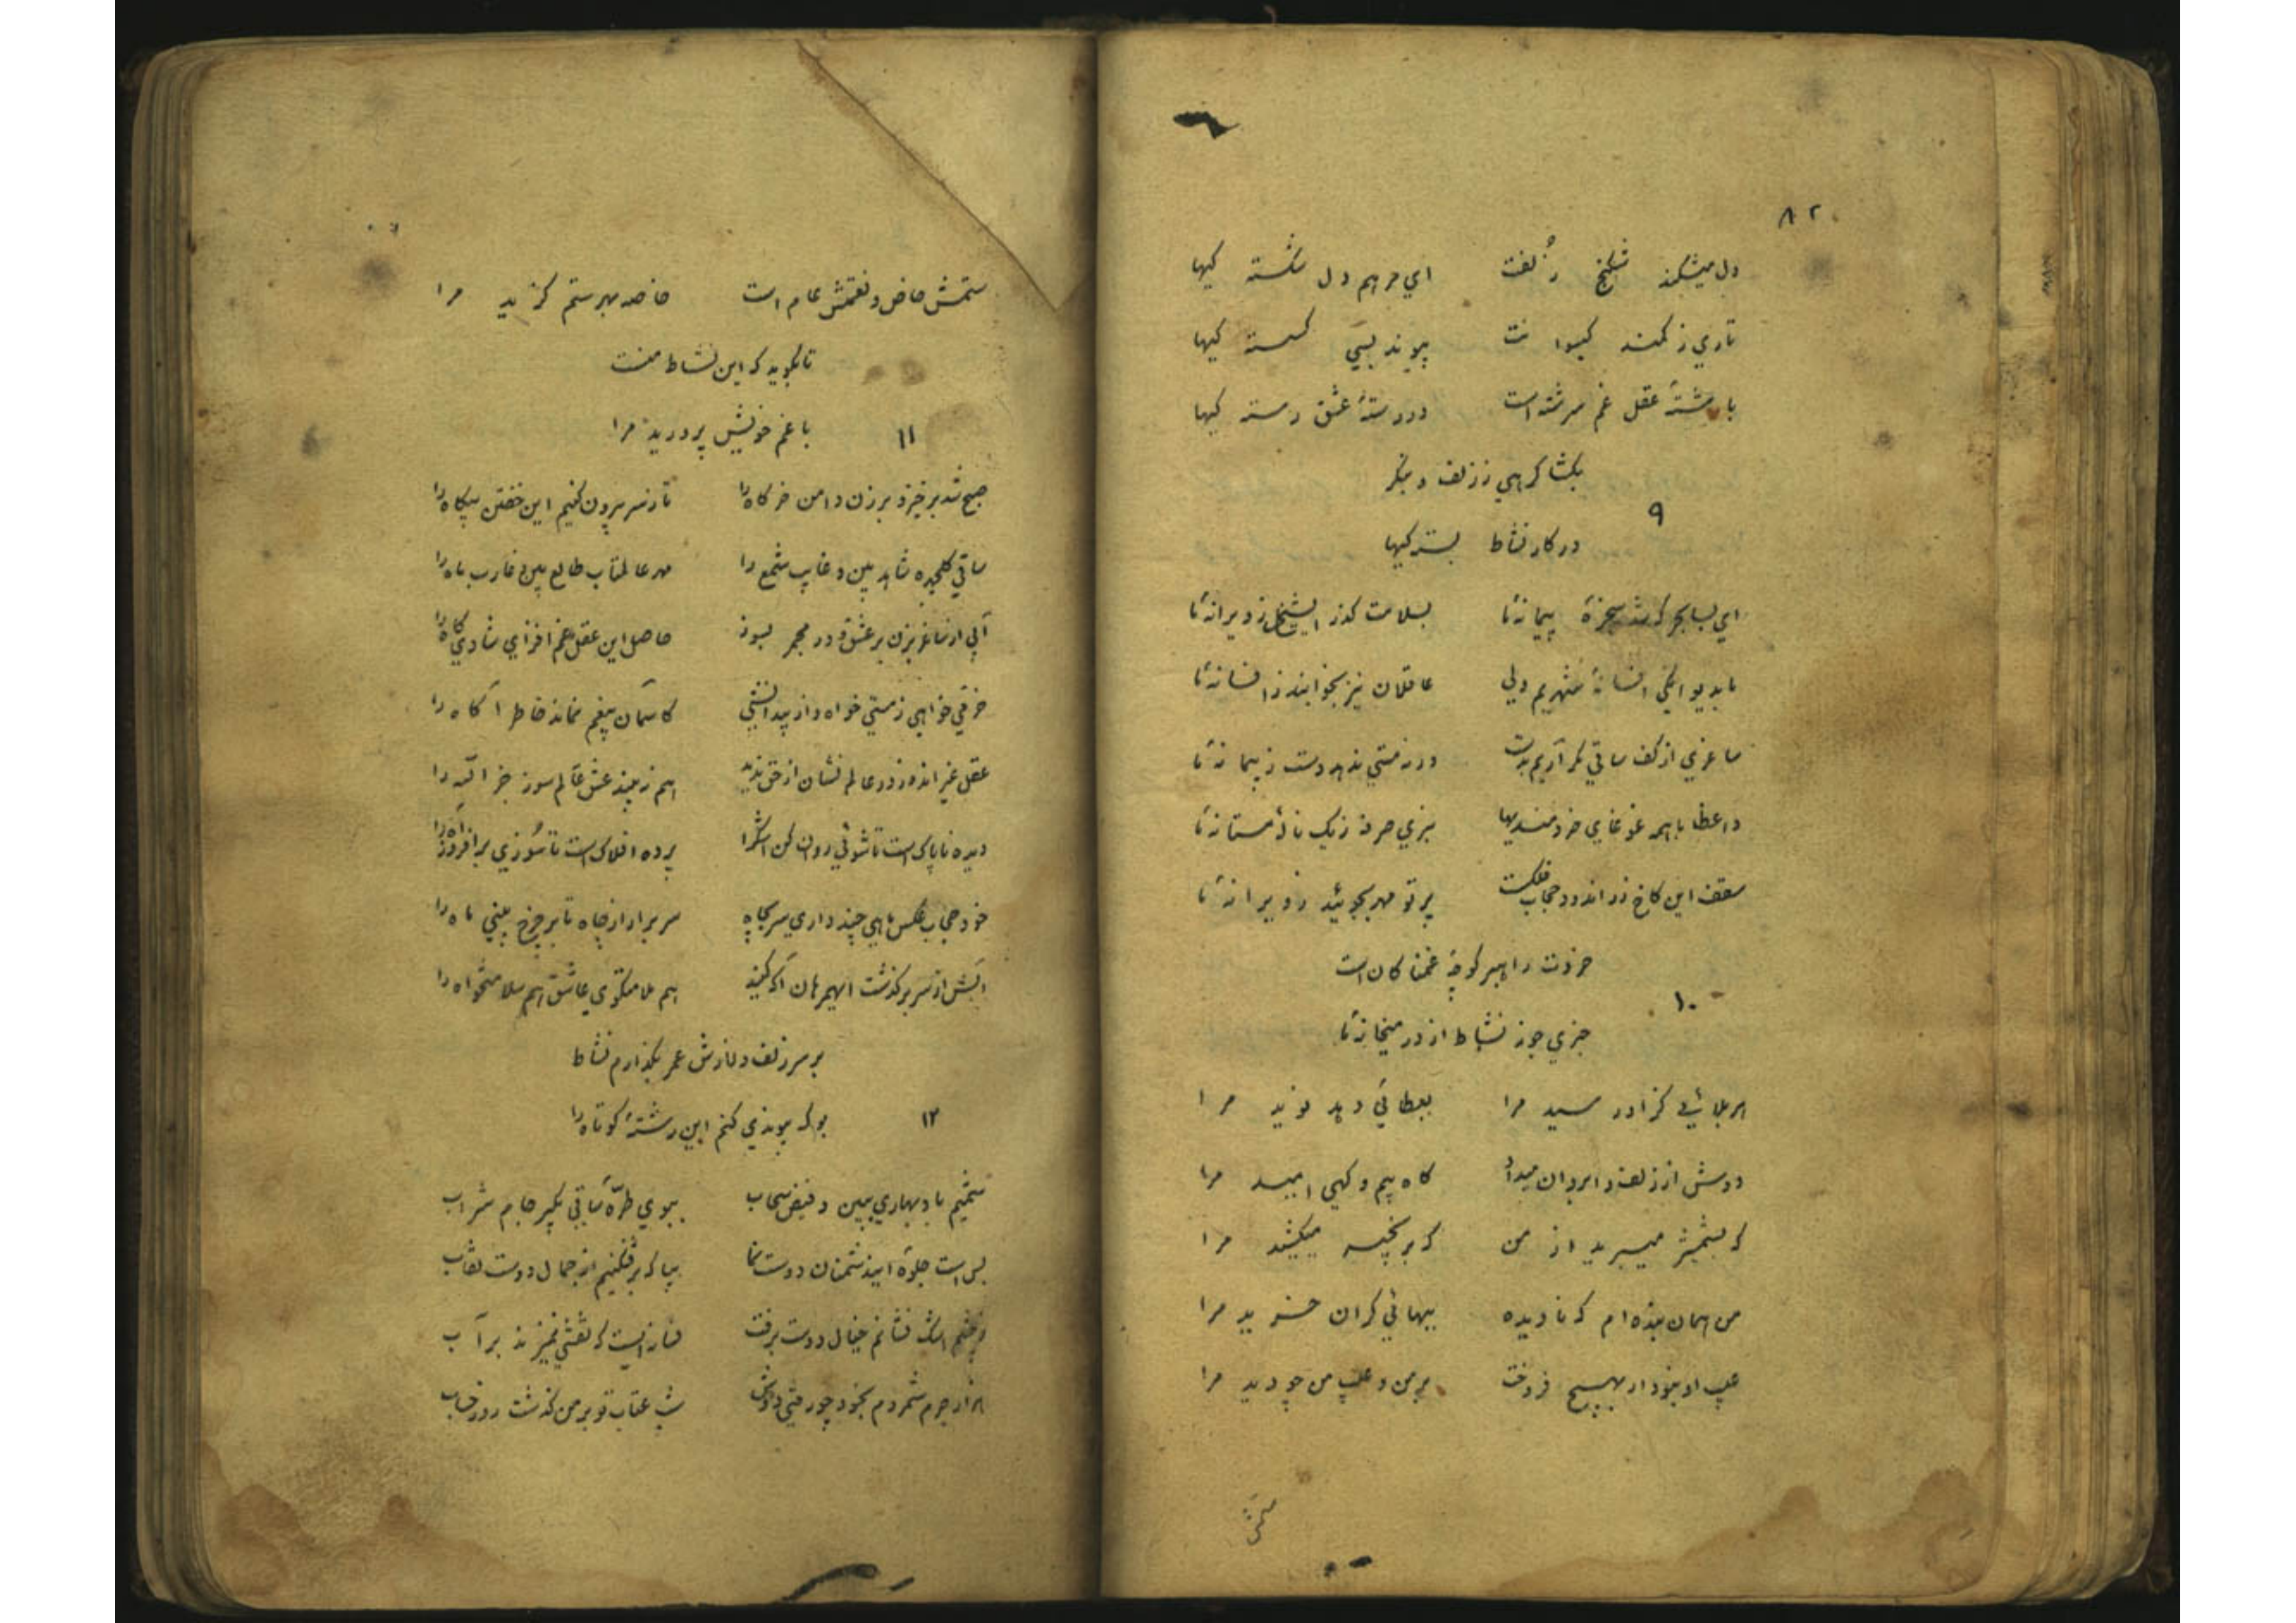 ۸۲
دل میشکند شکنج زلفت ای مرهم دل شکسته کیها
تاری ز کمند کیسوانت پیوند بسی کسسته کیها
با رشتهٔ عقل غم سرشته است در رستهٔ عشق رسته کیها
بکشا کرهی ز زلف و بنکر
۹
در کار نشاط بسته کیها
ای بسا بحر که شد سخرهٔ پیمانهٔ ما بسلامت کذر ایشیخ ز ویرانهٔ ما
ما بدیوانکی افسانهٔ شهریم ولی عاقلان نیز بخوابند ز افسانهٔ ما
ساغری از کف ساقی مکر آریم بدست ورنه مستی ندهد دست ز پیمانهٔ ما
واعظا با همه غوغای خردمندیها نبری صرفه ز یک نالهٔ مستانهٔ ما
سقف این کاخ زر اندود حجاب فلکست پرتو مهر بجوئید ز ویرانهٔ ما
خردت راهبر کوچهٔ غمناکان است
۱۰
خبری جوز نشاط از در میخانهٔ ما
هر بلائی کز او رسید مرا بعطائی دهد نوید مرا
دوش از زلف و ابروان میداد کاه بیم و کهی امید مرا
که بشمشیر میبرید از من که بزنجیر میکشید مرا
من همان بنده ام که نادیده ببهائی کران خرید مرا
عیب او بنود ار بهیچ فروخت بر من و عیب من چو دید مرا
ستمش
ستمش خاص و نعمتش عام است خاصه بهر ستم کزید مرا
تا بکوید که این نشاط منست
۱۱
با غم خویش پرورید مرا
صبح شد برخیز و برزن دامن خرکاه را تا ز سر بیرون کنیم این خفتن بیکاه را
ساقی کلچهره شاهد بین و غایب شمع را مهر عالمتاب طالع بین و غارب ماه را
آبی از ساغر بزن بر عشق و در مجمر بسوز حاصل این عقل غم افزای شادی کاه را
خرقی خواهی ز مستی خواه و از بیدانشی کاسمان بیغم نماند خاطر آکاه را
عقل غیر اندوز و عالم نشان از حق ندید هم نبیند عشق عالم سوز جز الله را
دیده ناپاک است تا شوئی روان کن اشک را پرده افلاک است تا سوزی برافروز آه را
خود حجاب عکس ماهی چند داری سر بچاه سر برار از چاه تا بر چرخ بینی ماه را
آبش از سر بر کذشت ایهمرهان آکه کنید هم ملامتکوی عاشق هم سلامتخواه را
بر سر زلف درازش عمر بکذارم نشاط
۱۲
بو که پیوندی کنم این رشتهٔ کوتاه را
شمیم باد بهاری ببین و فیض سحاب ببوی طرّه ساقی بکیر جام شراب
بس است جلوهٔ ایندشمنان دوست نما بیا که برفکنیم از جمال دوست نقاب
ز چشم اشک فشانم خیال دوست برفت فسانه ایست که نقشی نمیزند بر آب
هزار جرم شمردم بخود چو رفتی دوش شب عتاب تو بر من کذشت روز حساب